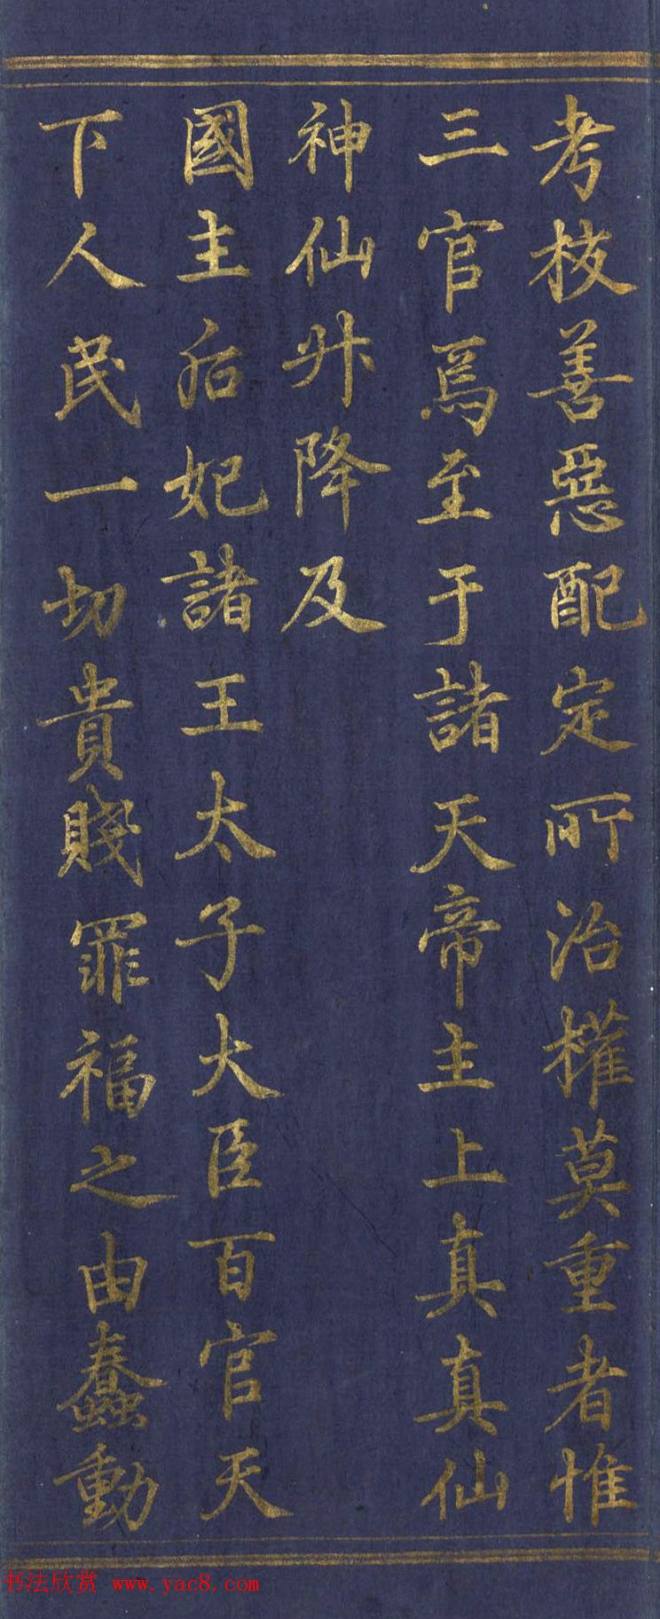 考校善惡配定所治權莫重者惟
三官焉至于諸天帝主上真真仙
神仙升降及
國主后妃諸王太子大臣百官天
下人民一切貴賤罪福之由蠢動
书法欣赏 www.yac8.com